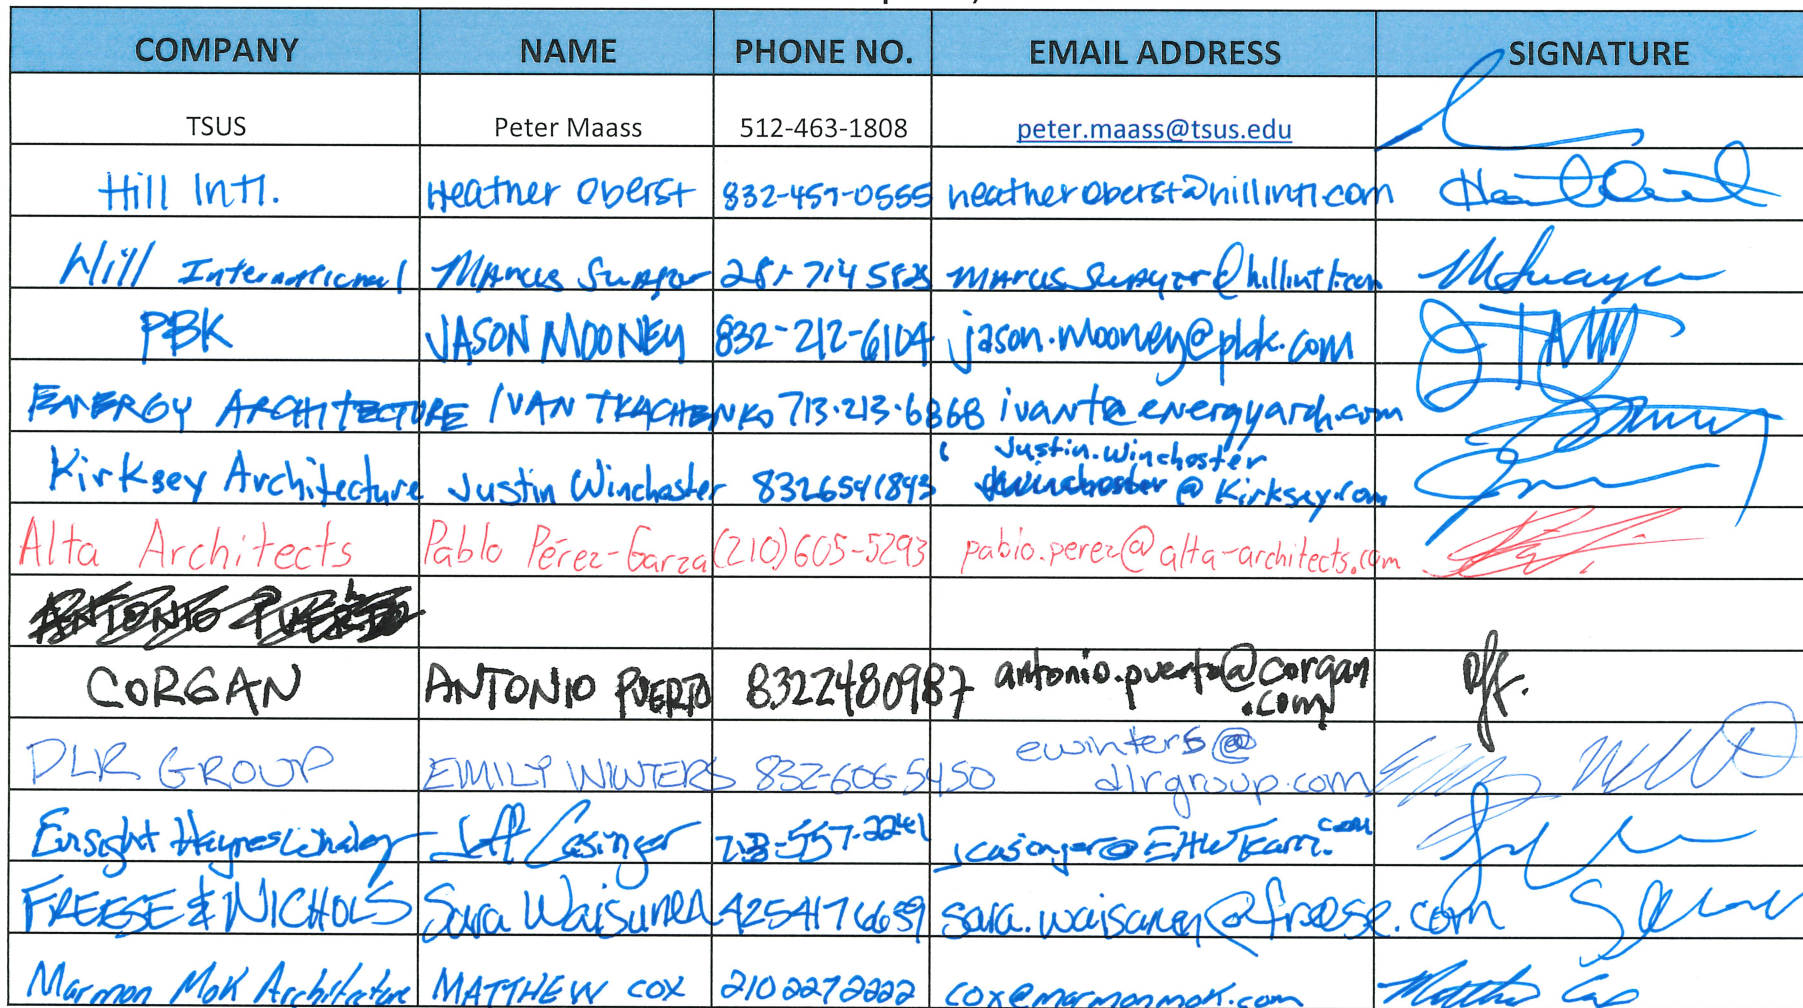 COMPANY NAME PHONE NO. EMAIL ADDRESS SIGNATURE
TSUS Peter Maass 512-463-1808 peter.maass@tsus.edu
Hill Intl. Heather Oberst 832-457-0555 heatheroberst@hillintl.com
Hill International Marcus 281-714 5825
PBK JASON MOONEY 832-212-6104 jason.mooney@pbk.com
ENERGY ARCHITECTURE IVAN TKACHENKO 713.213.6868 ivant@energyarch.com
Kirksey Architecture Justin Winchester 8326541893 Justin.winchester
@Kirksey.com
Alta Architects Pablo Pérez-Garza (210)605-5293 pablo.perez@alta-architects.com
ANTONIO PUERTO
CORGAN ANTONIO PUERTO 8322480987 antonio.puerto@corgan
.com
DLR GROUP EMILY WINTERS 832-606-5450 ewinters@
dlrgroup.com
Ensight Haynes Whaley Jeff Casinger 713-557-2241
FREESE & NICHOLS Sara Waisanen 4254176659 sara.waisanen@freese.com
Marmon Mok Architecture MATTHEW COX 2102272222 cox@marmonmok.com Matthew Cox